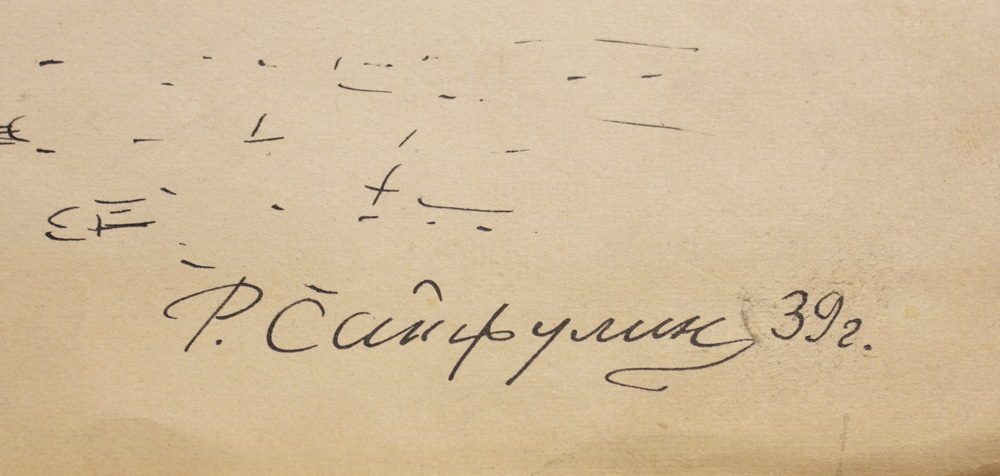 Р. Сайфулин 39г.